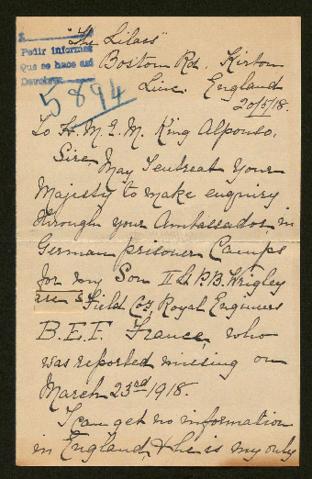 "The Lilacs"
Pedir informes
Que se hace así
Boston Rd. Kirton
Linc. England
5894
20/5/18.
To H. M. E. M. King Alfonso.
Sire, May I entreat Your
Majesty to make enquiry
through your Ambassador in
German prisoner Camps
for my Son II Lt P. B. Wrigley
Field Coy, Royal Engineers
B.E.F. France, who
was reported missing on
March 23rd 1918.
I can get no information
in England, & he is my only